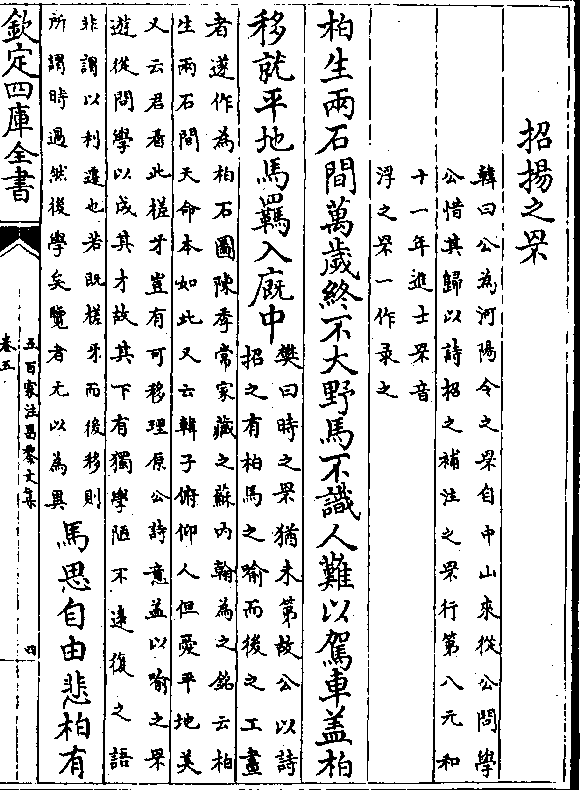 招揚之罘
韓曰公為河陽令之罘自中山來從公問學
公惜其歸以詩招之補注之罘行第八元和
十一年進士罘音
浮之罘一作衆之
柏生兩石間萬歲終不大野馬不識人難以駕車蓋柏
移就平地馬羈入廐中
樊曰時之罘猶未第故公以詩
招之有柏馬之喻而後之工畫
者遂作為柏石圖陳季常家藏之蘇內翰為之銘云柏
生兩石間天命本如此又云韓子俯仰人但愛平地美
又云君看此槎牙豈有可移理原公詩意蓋以喻之罘
遊從問學以成其才故其下有獨學陋不遠復之語
非謂以利遷也若既槎牙而後移則
所謂時過然後學矣覽者无以為異
馬思自由悲柏有
欽定四庫全書
五百家注昌黎文集
卷五
四